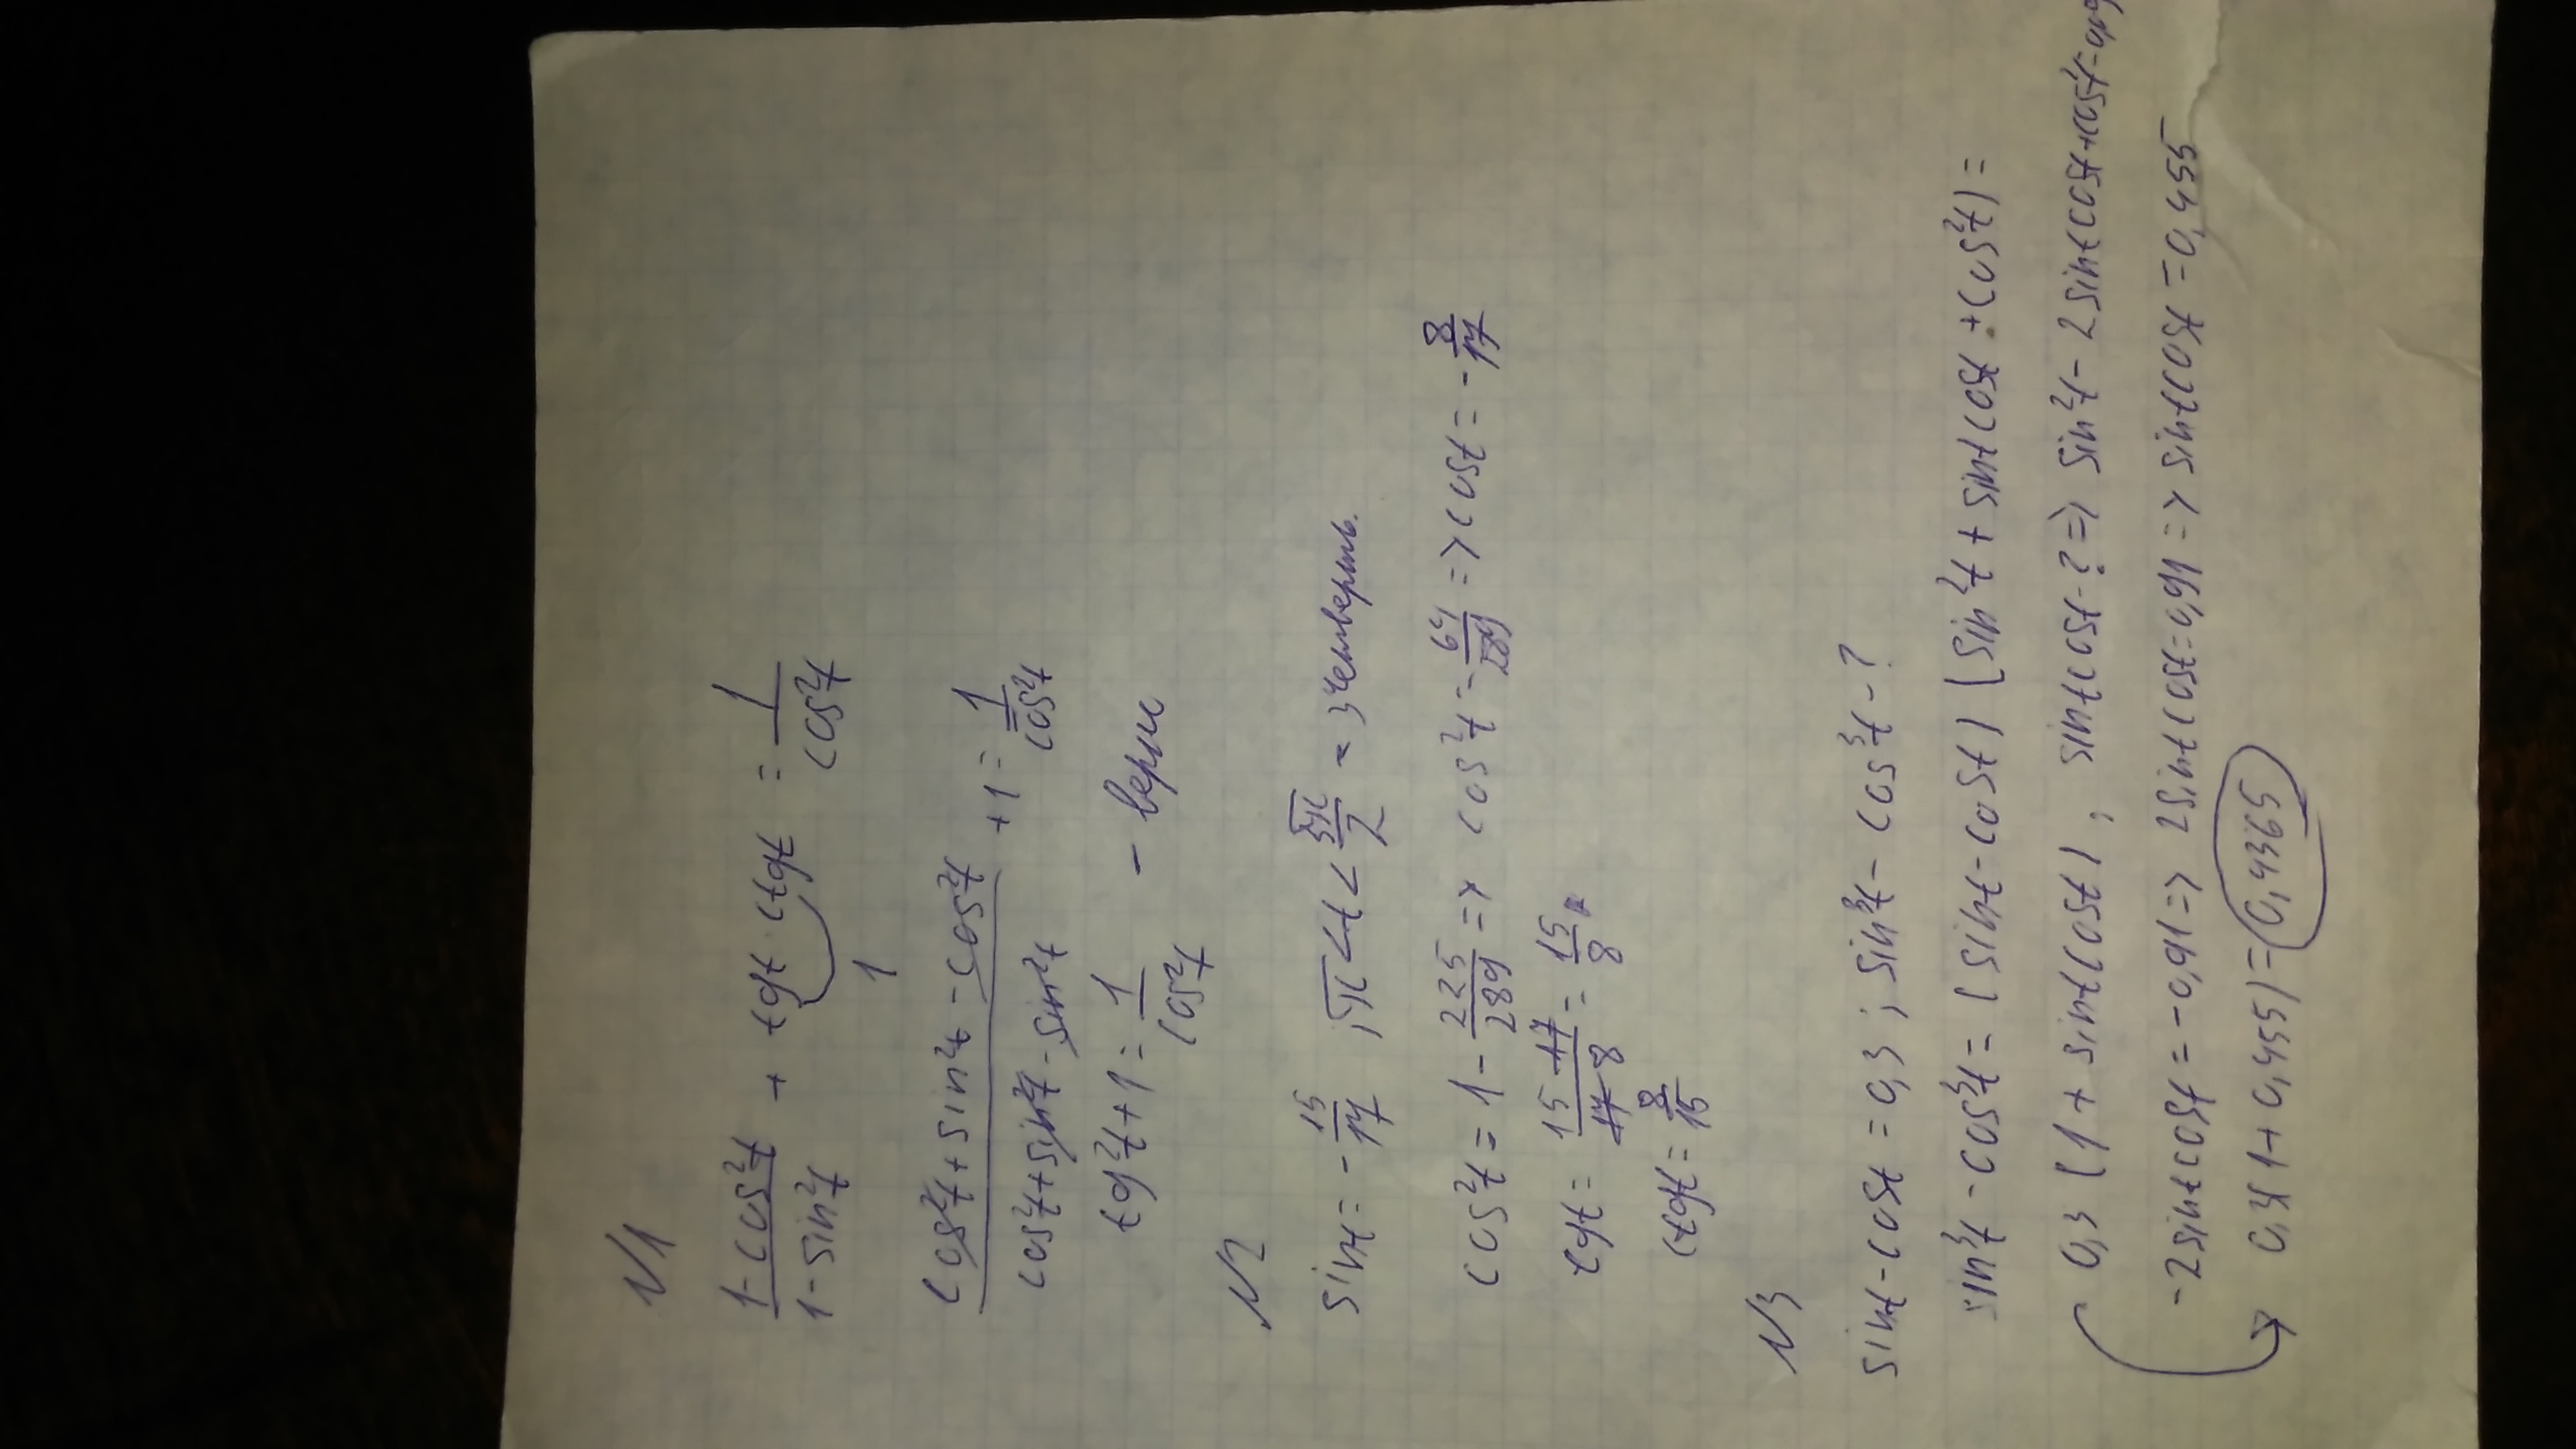 N1
(1-cos²t)/(1-sin²t) + tgt·ctgt = 1/cos²t
1
(cos²t+sin²t-cos²t)/(cos²t+sin²t-sin²t) +1 = 1/cos²t
tg²t+1 = 1/cos²t - верно
N2
sint = -15/17 ; π<t<3π/2 = 3 четверть.
cos²t = 1 - 225/289 => cos²t = 64/289 => cost = -8/17
tgt = (15·17)/(17·8) = 15/8
ctgt = 8/15
N3
sint-cost = 0,3 ; sin³t-cos³t-?
sin³t-cos³t = (sint-cost)(sin²t+sintcost+cos²t) =
0,3(1+sintcost) ; sintcost-? => sin²t-2sintcost+cos²t=0,09
-2sintcost=-0,91=> 2sintcost=0,91 => sintcost=0,455
0,3(1+0,455)= 0,4365